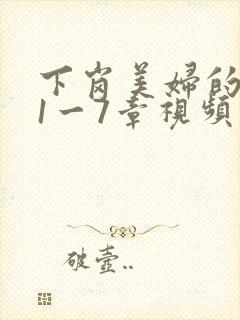 下岗美婦的
1一7章視頻
破壺..